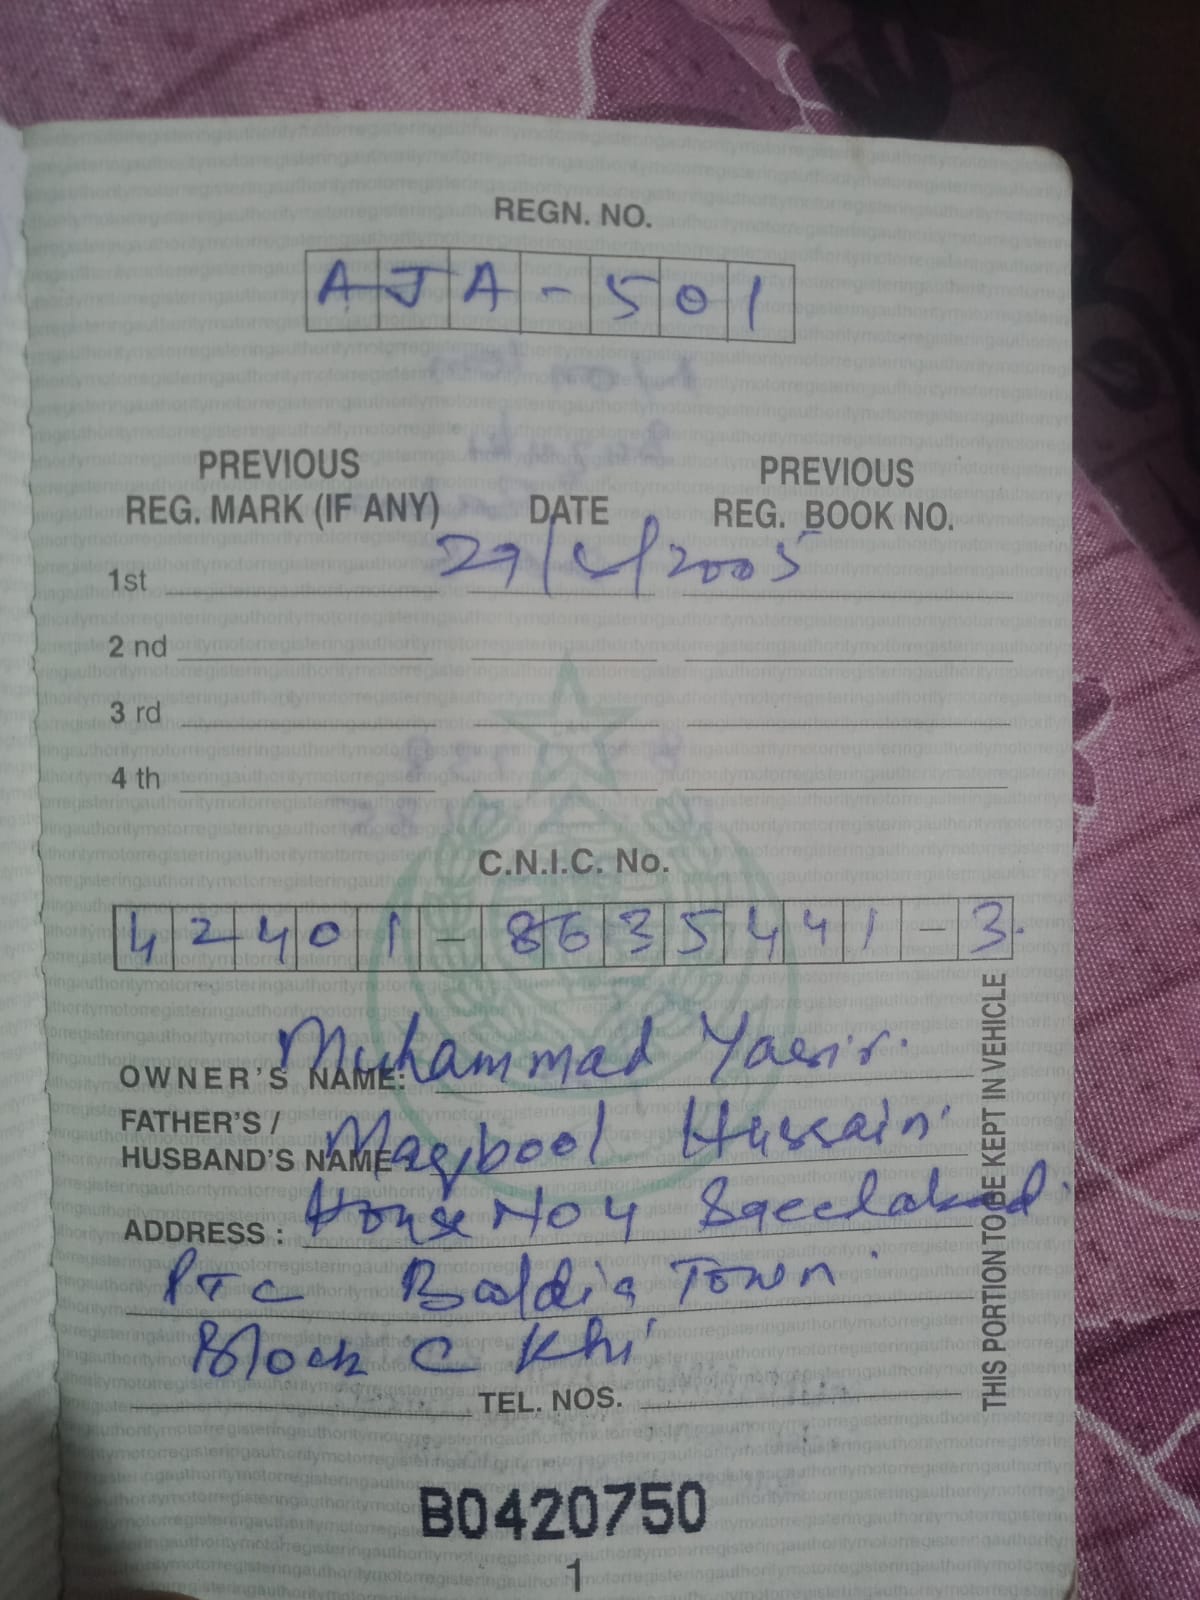 REGN. NO.
AJA-501
PREVIOUS REG. MARK (IF ANY) DATE PREVIOUS REG. BOOK NO.
1st 27/ /2005
2 nd
3 rd
4 th
C.N.I.C. No.
42401-8635441-3
OWNER'S NAME: Muhammad Yasir
FATHER'S / HUSBAND'S NAME Maqbool Hussain
ADDRESS : House No 4 Saeedabad
PTC Baldia Town
Block C Khi
TEL. NOS.
THIS PORTION TO BE KEPT IN VEHICLE
B0420750
1